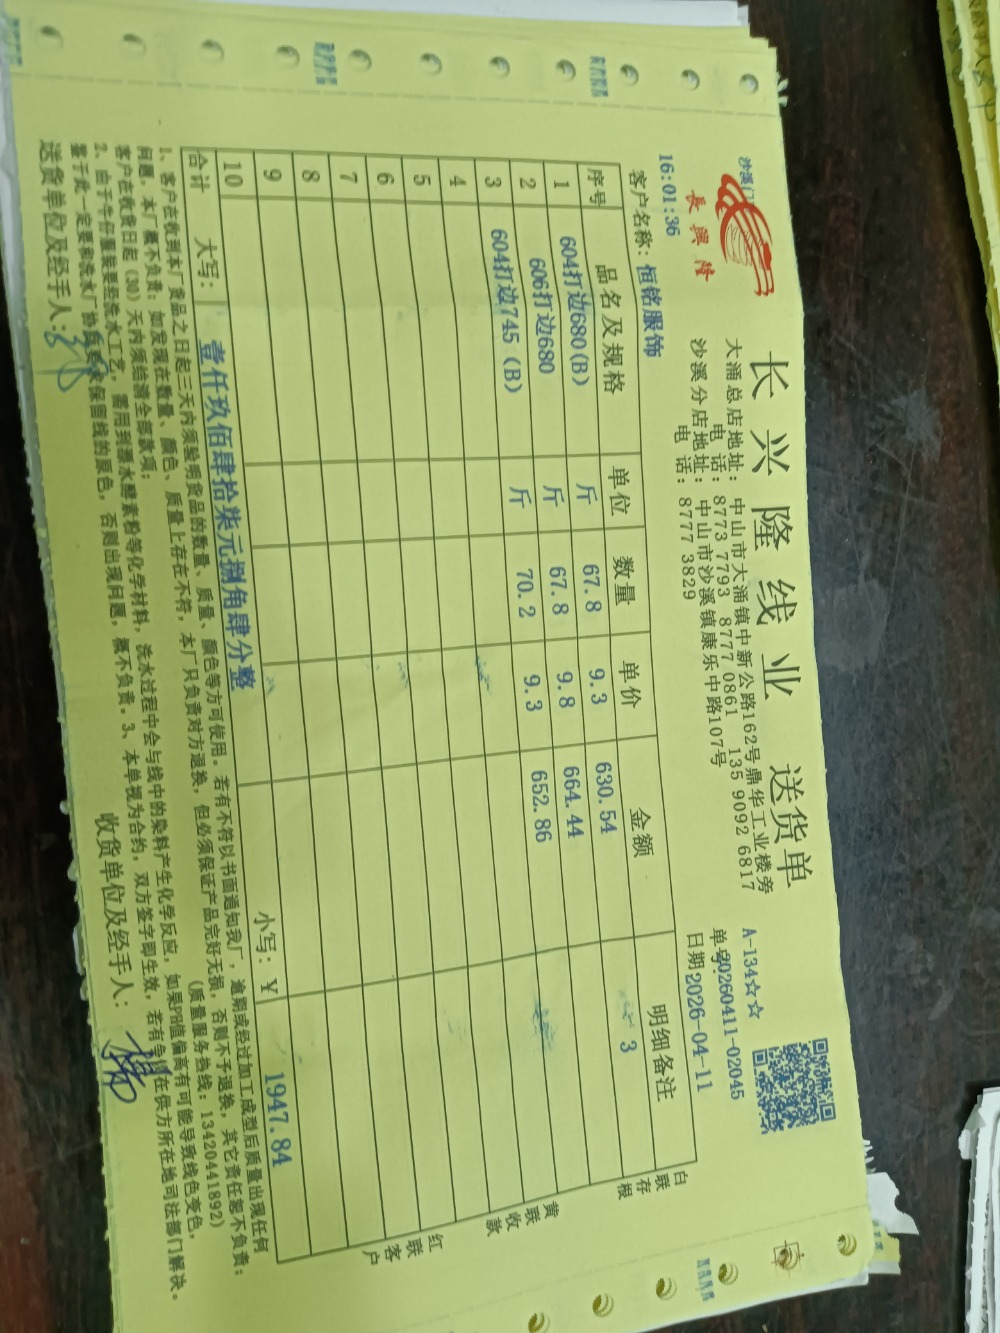 长兴隆线业 送货单
沙溪门
長興隆
大涌总店地址：中山市大涌镇中新公路162号鼎华工业楼旁
电 话：8773 7793 8777 0861 135 9092 6817
沙溪分店地址：中山市沙溪镇康乐中路107号
电 话：8777 3829
A-134☆☆
单号:20260411-02045
16:01:36
日期 2026-04-11
客户名称：恒铭服饰
序号 品名及规格 单位 数量 单价 金额 明细备注
1 604打边680(B) 斤 67.8 9.3 630.54 3
2 606打边680 斤 67.8 9.8 664.44
3 604打边745 (B) 斤 70.2 9.3 652.86
4
5
6
7
8
9
10
合计 大写：壹仟玖佰肆拾柒元捌角肆分整 小写：¥ 1947.84
白联存根
黄联收款
红联客户
1、客户在收到本厂货品之日起三天内须验明货品的数量、质量、颜色等方可使用。若有不符以书面通知我厂，逾期或经过加工成型后质量出现任何
问题，本厂概不负责；如发现在数量、颜色、质量上存在不符，本厂只负责对方退换，但必须保证产品完好无损，否则不予退换，其它责任恕不负责；
客户在收货日起（30）天内须结清全部款项； （质量服务热线：13420441892）
2、由于牛仔服装要经洗水工艺，需用到漂水酵素粉等化学材料，洗水过程中会与线中的染料产生化学反应，如果PH值偏高有可能导致线色变色，
鉴于此一定要和洗水厂 保留线的原色，否则出现问题，概不负责。3、本单视为合约，双方签字即生效，若有争议在供方所在地司法部门解决。
送货单位及经手人： 收货单位及经手人：